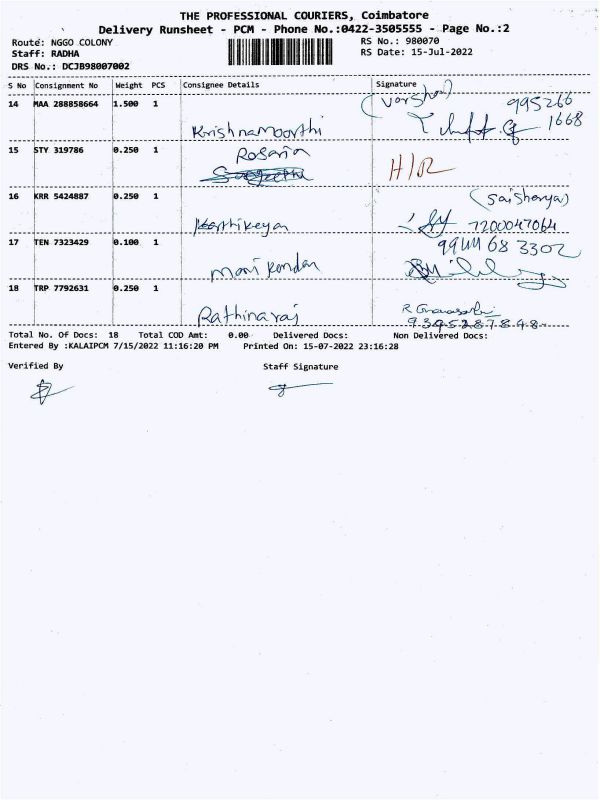 THE PROFESSIONAL COURIERS, Coimbatore
Delivery Runsheet - PCM - Phone No.:0422-3505555 - Page No.:2
Route: NGGO COLONY RS No.: 980070
Staff: RADHA RS Date: 15-Jul-2022
DRS No.: DCJB98007002
S No Consignment No Weight PCS Consignee Details Signature
14 MAA 288858664 1.500 1
995266
1668
Krishnamoorthi
15 STY 319786 0.250 1
Rosaria
H/R
16 KRR 5424887 0.250 1
Karthikeyan 7200047064
17 TEN 7323429 0.100 1
9944 68 3302
Mani kandan
18 TRP 7792631 0.250 1
Rathinaraj
9395287848
Total No. Of Docs: 18 Total COD Amt: 0.00 Delivered Docs: Non Delivered Docs:
Entered By :KALAIPCM 7/15/2022 11:16:20 PM Printed On: 15-07-2022 23:16:28
Verified By Staff Signature